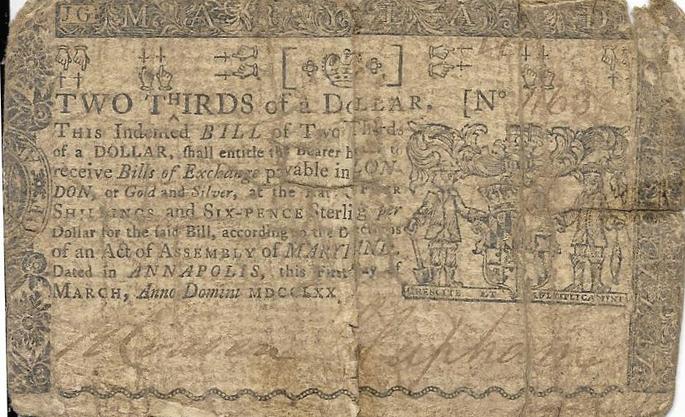 JG MARYLAND
TWO THIRDS of a DOLLAR. [N°
THIS Indented BILL of Two Thirds
of a DOLLAR, shall entitle the Bearer to
receive Bills of Exchange payable in LON-
DON, or Gold and Silver, at the
SHILLINGS and SIX-PENCE Sterling per
Dollar for the said Bill, according to the
of an Act of ASSEMBLY of MARYLAND.
Dated in ANNAPOLIS, this First Day of
MARCH, Anno Domini MDCCLXX
CRESCITE ET MULTIPLICAMINI
Clapham